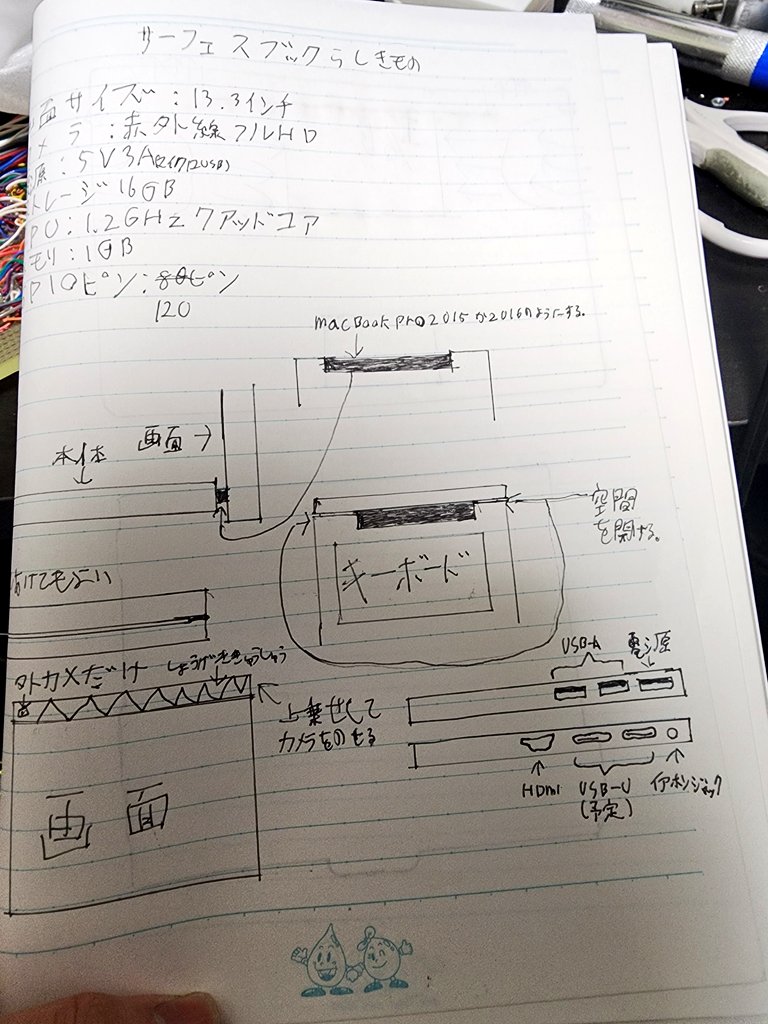 サーフェスブックらしきもの
面サイズ：13.3インチ
メラ：赤外線フルHD
源：5V3A(マイクロUSB)
トレージ16GB
PU：1.2GHzクアッドコア
モリ：1GB
PIOピン：80ピン
120
macBook proの2015か2016のようにする。
本体
画面→
空間
を開ける。
キーボード
あけてもよい
外カメだけ
しょうげききゅうしゅう
上乗せして
カメラをのせる
画面
USB-A
電源
HDmi
USB-C
(予定)
イアホンジャック